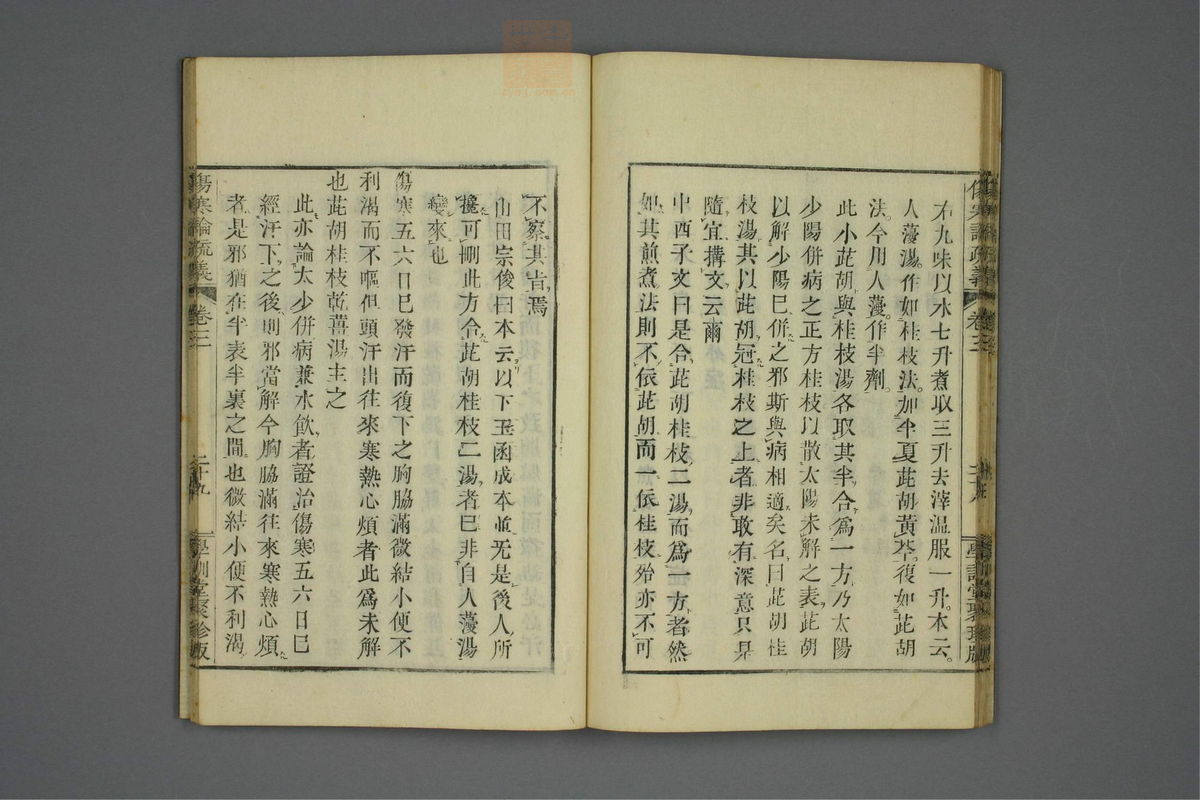 傷寒論疏義
卷三
二十八
學訓堂聚珍版
右九味以水七升煮取三升去滓溫服一升本云
人薓湯作如桂枝法加半夏茈胡黃芩復如茈胡
法今用人薓作半劑
此小茈胡與桂枝湯各取其半合爲一方乃太陽
少陽併病之正方桂枝以散太陽未解之表茈胡
以解少陽已併之邪斯與病相適矣名曰茈胡桂
枝湯其以茈胡冠桂枝之上者非敢有深意只是
隨宜搆文云爾
中西子文曰是合茈胡桂枝二湯而爲一方者然
如其煎煮法則不依茈胡而依桂枝殆亦不可
不察其旨焉
山田宗俊曰本云以下玉函成本並无是後人所
攙可刪此方合茈胡桂枝二湯者已非自人薓湯
變來也
傷寒五六日已發汗而復下之胸脇滿微結小便不
利渴而不嘔但頭汗出往來寒熱心煩者此爲未解
也茈胡桂枝乾薑湯主之
此亦論太少併病兼水飲者證治傷寒五六日已
經汗下之後則邪當解今胸脇滿往來寒熱心煩
者是邪猶在半表半裏之間也微結小便不利渴
傷寒論疏義
卷三
二十九
學訓堂聚珍版